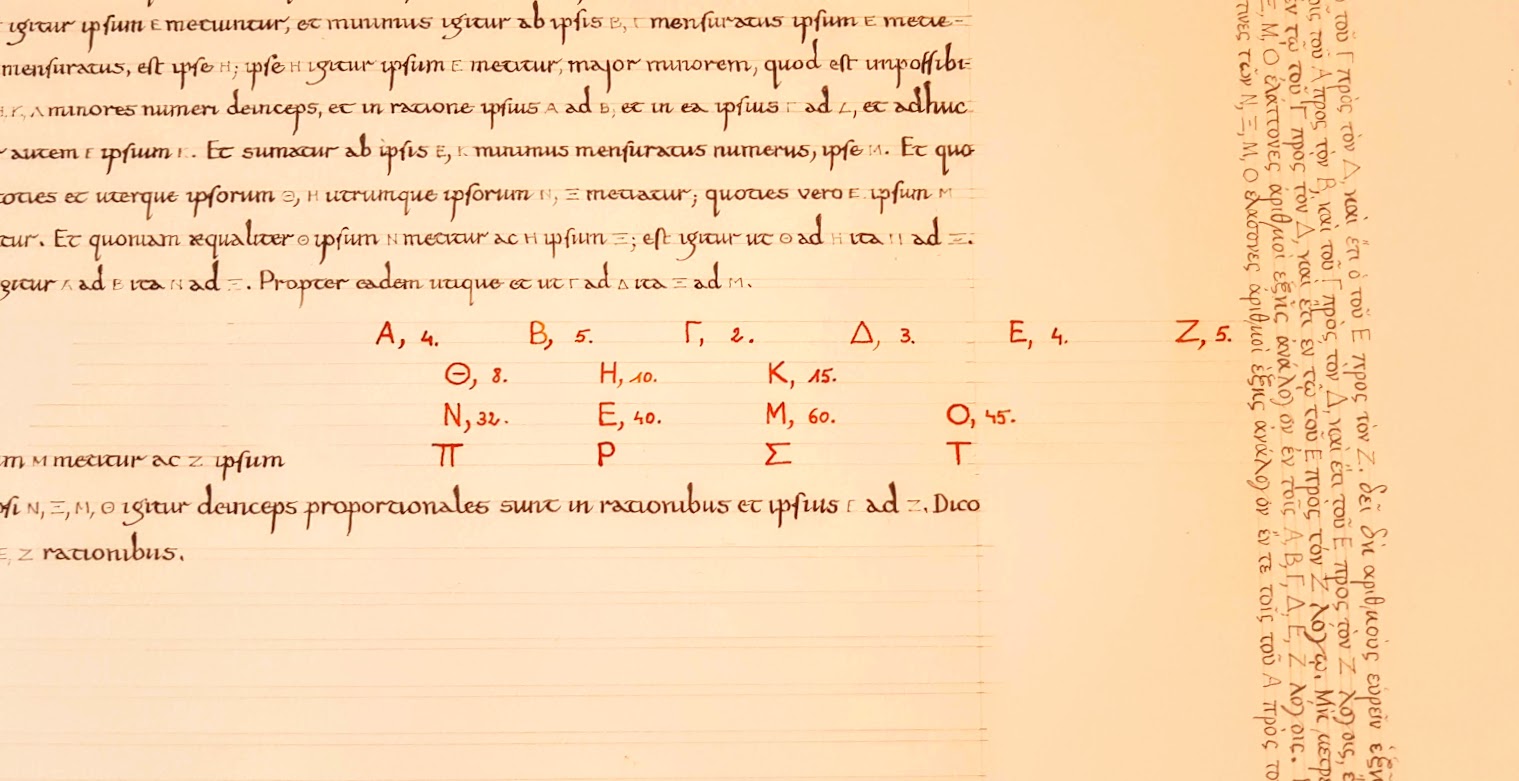 igitur ipsum E metiuntur, et minimus igitur ab ipsis B, Γ mensuratus ipsum E metie-
mensuratus, est ipse H; ipse H igitur ipsum E metitur, major minorem, quod est impossibi-
H, K, Λ minores numeri deinceps, et in ratione ipsius A ad B, et in ea ipsius Γ ad Δ, et adhuc
autem E ipsum K. Et sumatur ab ipsis E, K minimus mensuratus numerus, ipse M. Et quo
toties et uterque ipsorum Θ, H utrumque ipsorum N, Ξ metiatur; quoties vero E ipsum M
tur. Et quoniam æqualiter Θ ipsum N metitur ac H ipsum Ξ; est igitur ut Θ ad H ita N ad Ξ.
gitur A ad B ita N ad Ξ. Propter eadem utique et ut Γ ad Δ ita Ξ ad M.
A, 4. B, 5. Γ, 2. Δ, 3. E, 4. Z, 5.
Θ, 8. H, 10. K, 15.
N, 32. E, 40. M, 60. O, 45.
Π P Σ T
m M metitur ac Z ipsum
psi N, Ξ, M, Θ igitur deinceps proportionales sunt in rationibus et ipsius Γ ad Z. Dico
E, Z rationibus.
τοῦ Γ πρὸς τὸν Δ, καὶ ἔτι ὁ τοῦ Ε προς τὸν Ζ. δεῖ δὴ αριθμοὺς εὑρεῖν ἑξῆ
τοῦ Α προς τὸν Β, καὶ τοῦ Γ πρὸς τον Δ, καὶ ἔτι τοῦ Ε προς τὸν Ζ λόγοις,
ἐν τῷ τοῦ Γ προς τὸν Δ, καὶ ἔτι ἐν τῷ τοῦ Ε πρὸς τὸν Ζ λόγῳ. Μὴ
Ξ, Μ, Ο ἐλάττονες ἀριθμοὶ ἑξῆς ἀνάλογον ἐν τοῖς Α, Β, Γ, Δ, Ε, Ζ λόγοις.
τινες τῶν Ν, Ξ, Μ, Ο ἐλάσσονες ἀριθμοὶ ἑξῆς ἀνάλογον ἔν τε τοῖς τοῦ Α πρὸς το